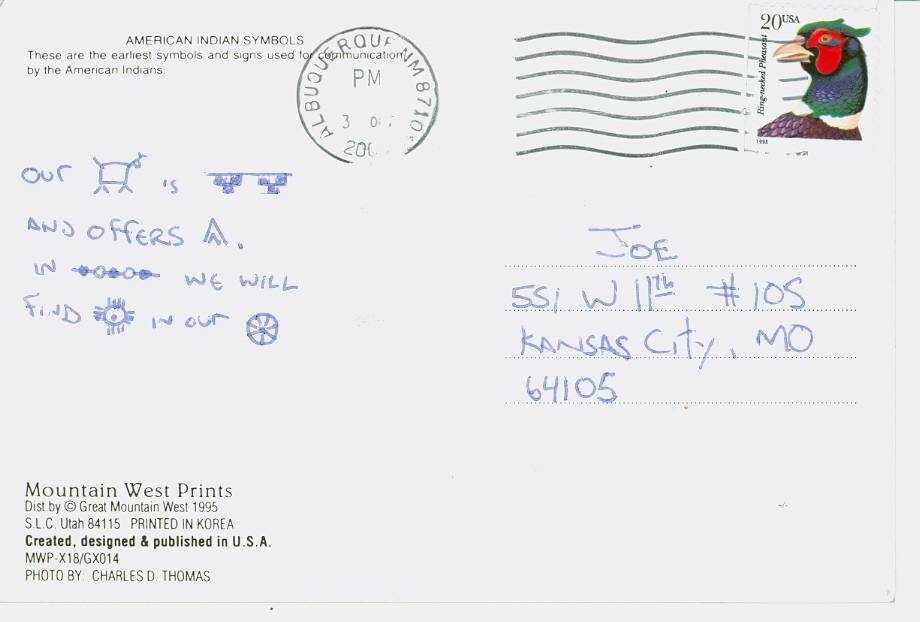 AMERICAN INDIAN SYMBOLS
These are the earliest symbols and signs used for communication
by the American Indians
ALBUQUERQUE NM 8710
PM
3
200
20USA
Ring-necked Pheasant
1998
OUR IS
AND OFFERS .
IN WE WILL
FIND IN OUR
JOE
551 W 11TH #105
KANSAS City, MO
64105
Mountain West Prints
Dist.by © Great Mountain West 1995
S.L.C. Utah 84115 PRINTED IN KOREA
Created, designed & published in U.S.A.
MWP-X18/GX014
PHOTO BY: CHARLES D. THOMAS